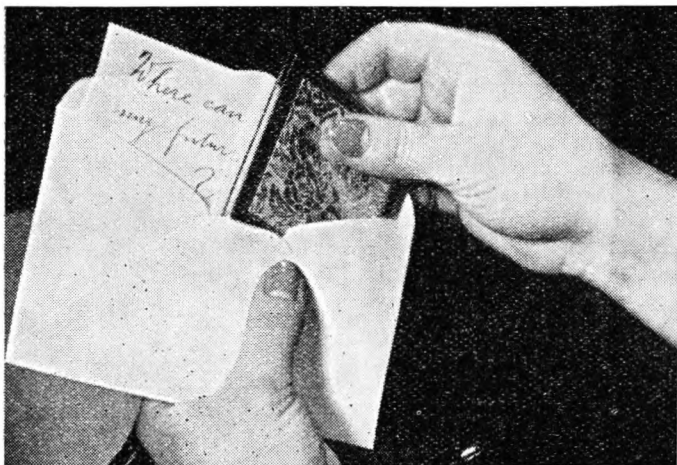 Where can
my futur
?